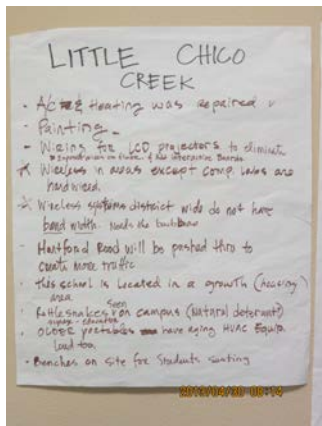 LITTLE CHICO
CREEK
- A/C & Heating was repaired
- Painting
- Wiring for LCD projectors to eliminate
Wireless in areas except comp. labs are
hardwired
Wireless systems district wide do not have
band width. Needs the backbone
- Hartford Road will be pushed thru to
create more traffic
- This school is located in a growth (housing)
area
Seen
- Rattlesnakes on campus (Natural deterrant)
- OLDER portables have aging HVAC Equip.
Loud too.
- Benches on site for students seating
2013/04/30 08:14